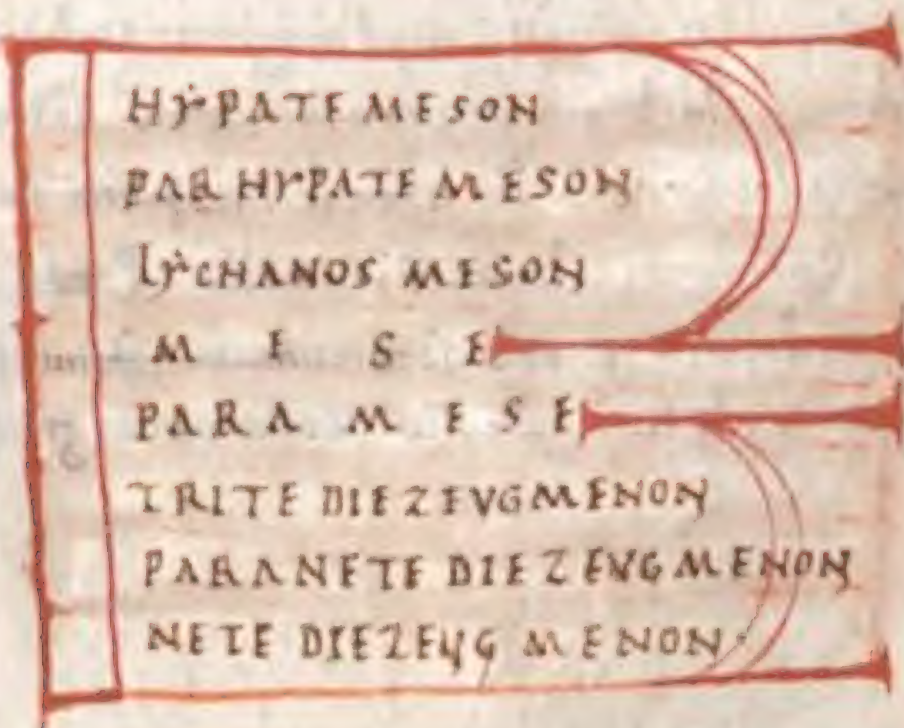 HYPATE MESON
PARHYPATE MESON
LYCHANOS MESON
MESE
PARAMESE
TRITE DIEZEVGMENON
PARANETE DIEZEVGMENON
NETE DIEZEVGMENON